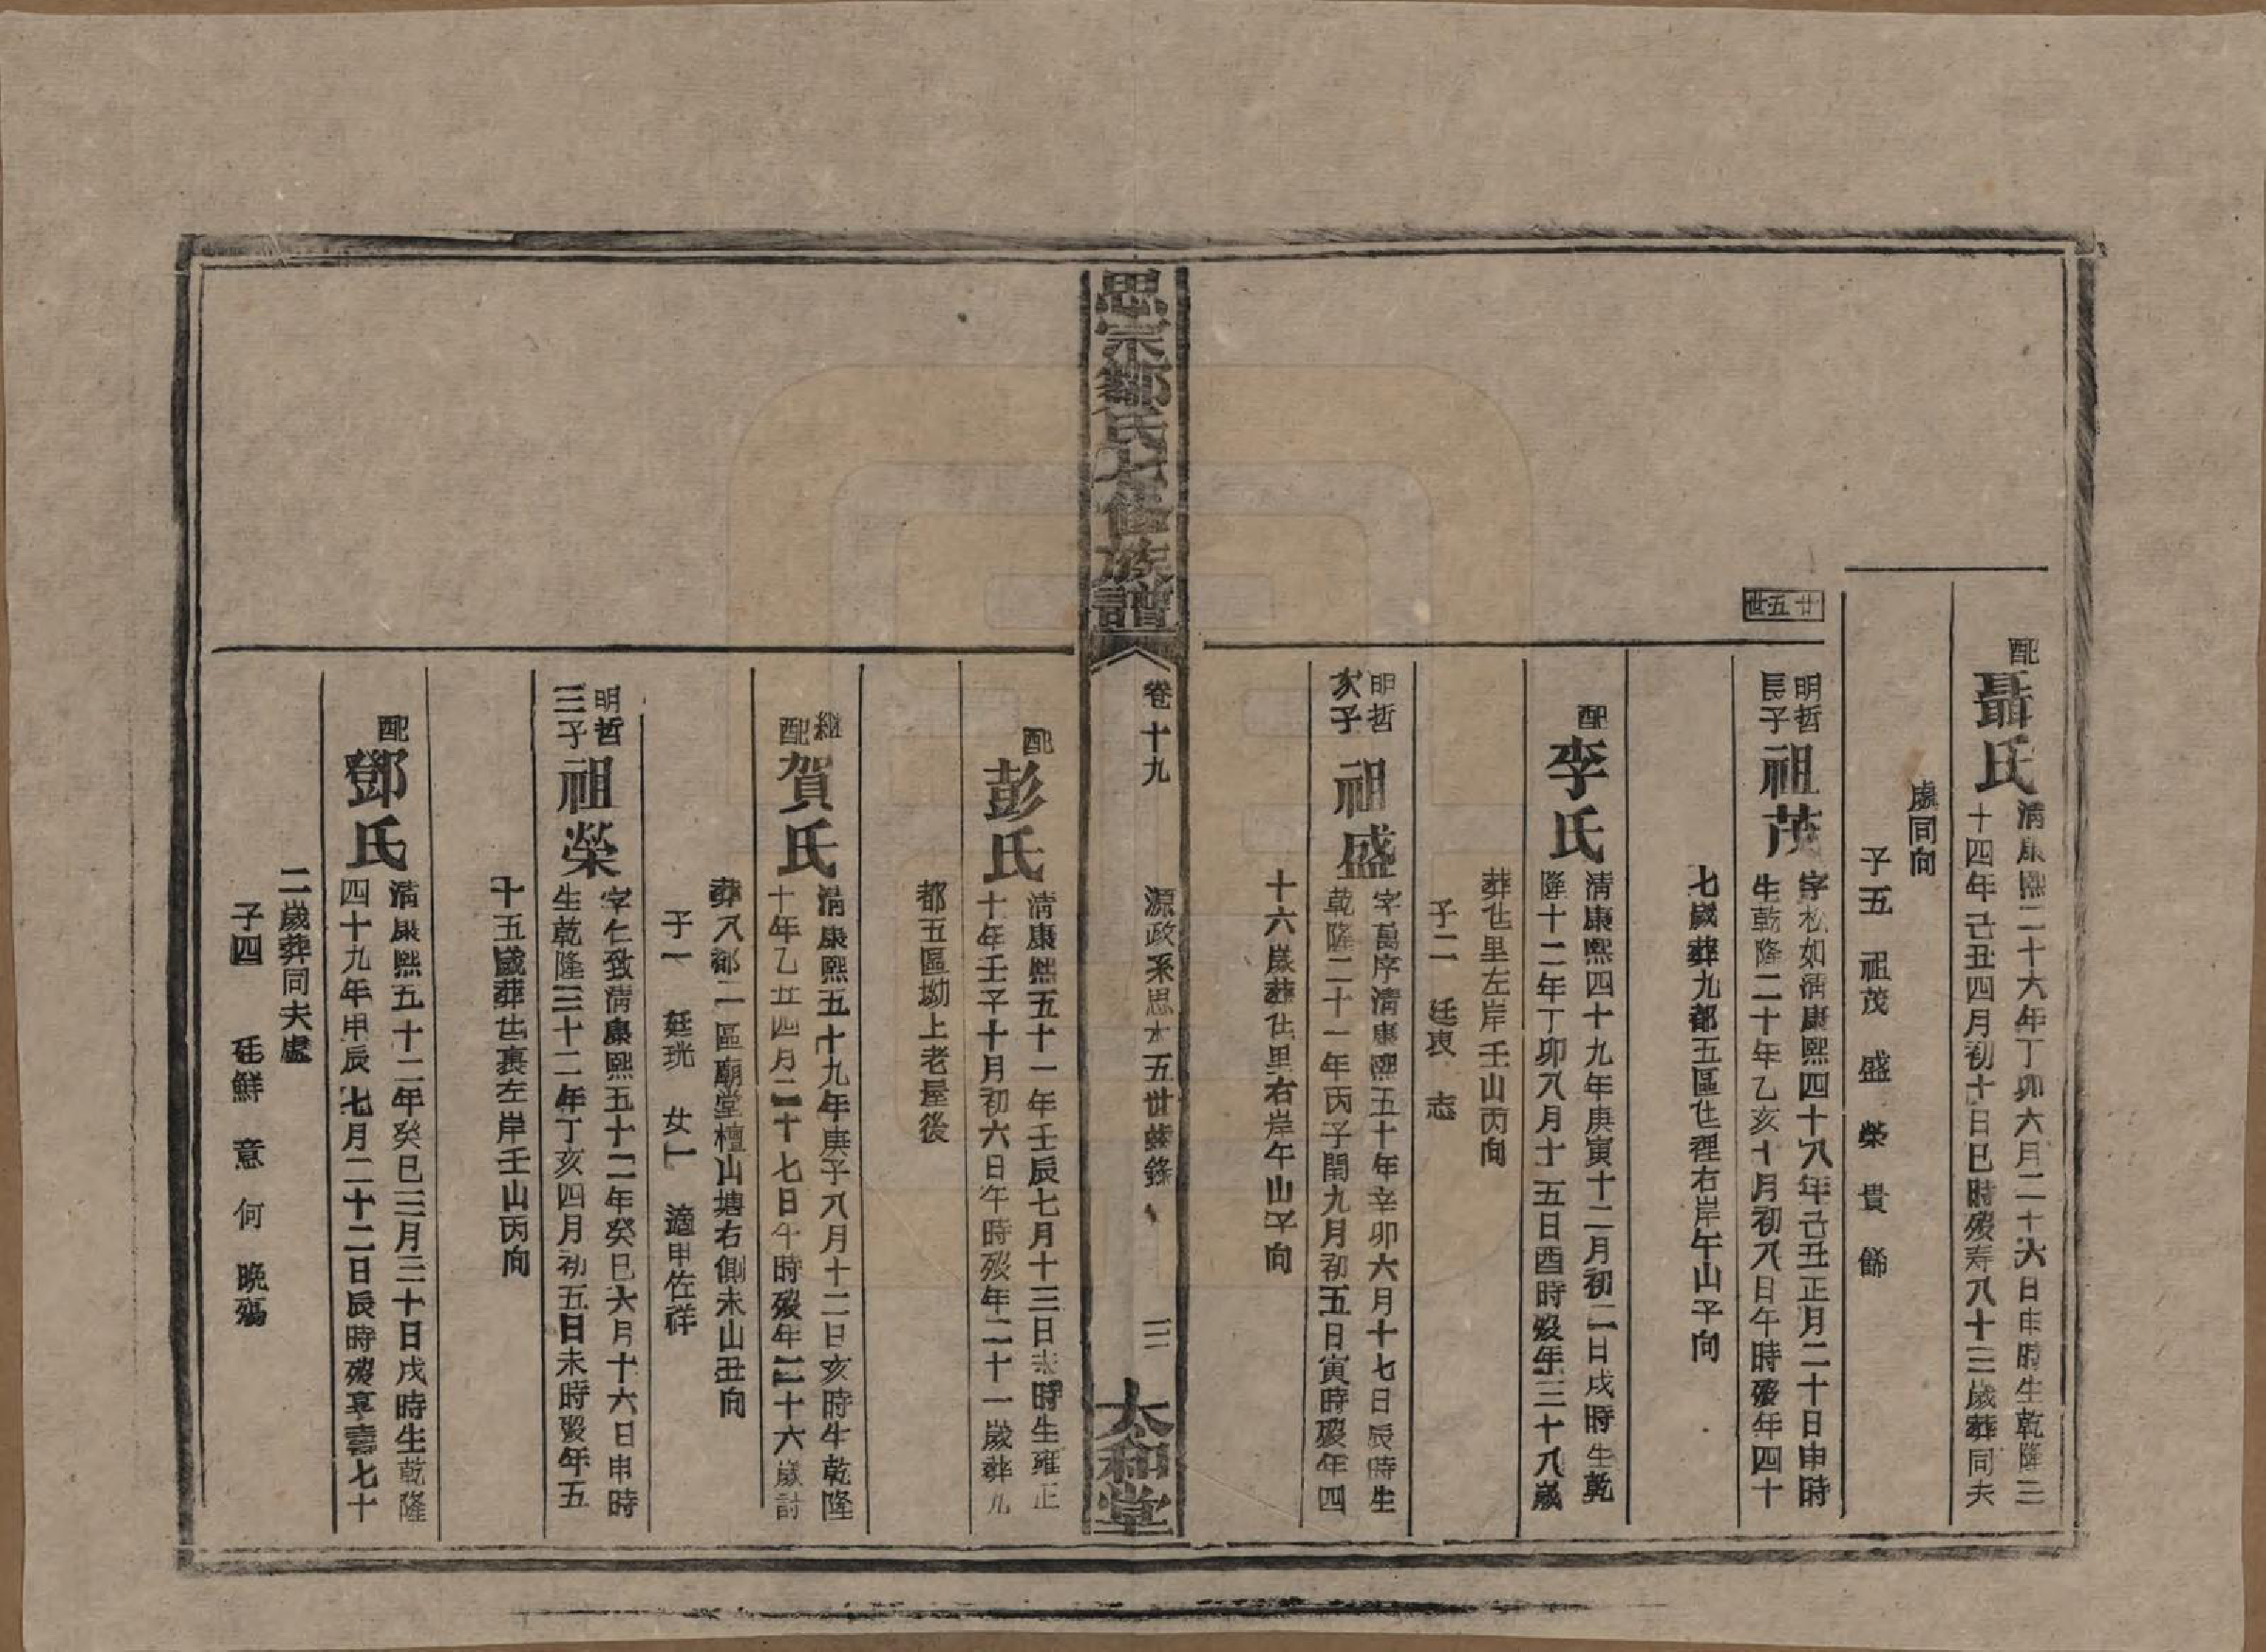 配
聶氏
清康熙二十六年丁卯六月二十六日申時生乾隆三
十四年己丑四月初十日巳時歿寿八十三歲葬同夫
處同向
子五 祖茂 盛 榮 貴 篩
廿五世
明哲
長子
祖茂
字松如清康熙四十八年己丑正月二十日申時
生乾隆二十年乙亥十月初八日午時歿年四十
七歲葬九都五區仕裡右岸午山子向
配
李氏
清康熙四十九年庚寅十二月初二日戌時生乾
隆十二年丁卯八月十五日酉時歿年三十八歲
葬仕里左岸壬山丙向
子二 廷衷 志
明哲
次子
祖盛
字萬序清康熙五十年辛卯六月十七日辰時生
乾隆二十一年丙子閏九月初五日寅時歿年四
十六歲葬仕里右岸午山子向
思宗鄒氏七修族譜
卷十九
源政系思木五世𦵏錄
三
太和堂
配
彭氏
清康熙五十一年壬辰七月十三日未時生雍正
十年壬子十月初六日午時歿年二十一歲葬九
都五區坳上老屋後
繼
配
賀氏
清康熙五十九年庚子八月十二日亥時生乾隆
十年乙丑四月二十七日午時歿年二十六歲討
葬八都二區廟堂檀山塘右側未山丑向
子一 廷珖 女一 適甲佐祥
明哲
三子
祖榮
字仁致清康熙五十二年癸巳六月十六日申時
生乾隆三十二年丁亥四月初五日未時歿年五
十五歲葬仕裏左岸壬山丙向
配
鄧氏
清康熙五十二年癸巳三月三十日戌時生乾隆
四十九年甲辰七月二十二日辰時歿享壽七十
二歲葬同夫處
子四 廷鮮 意 何 晚殤